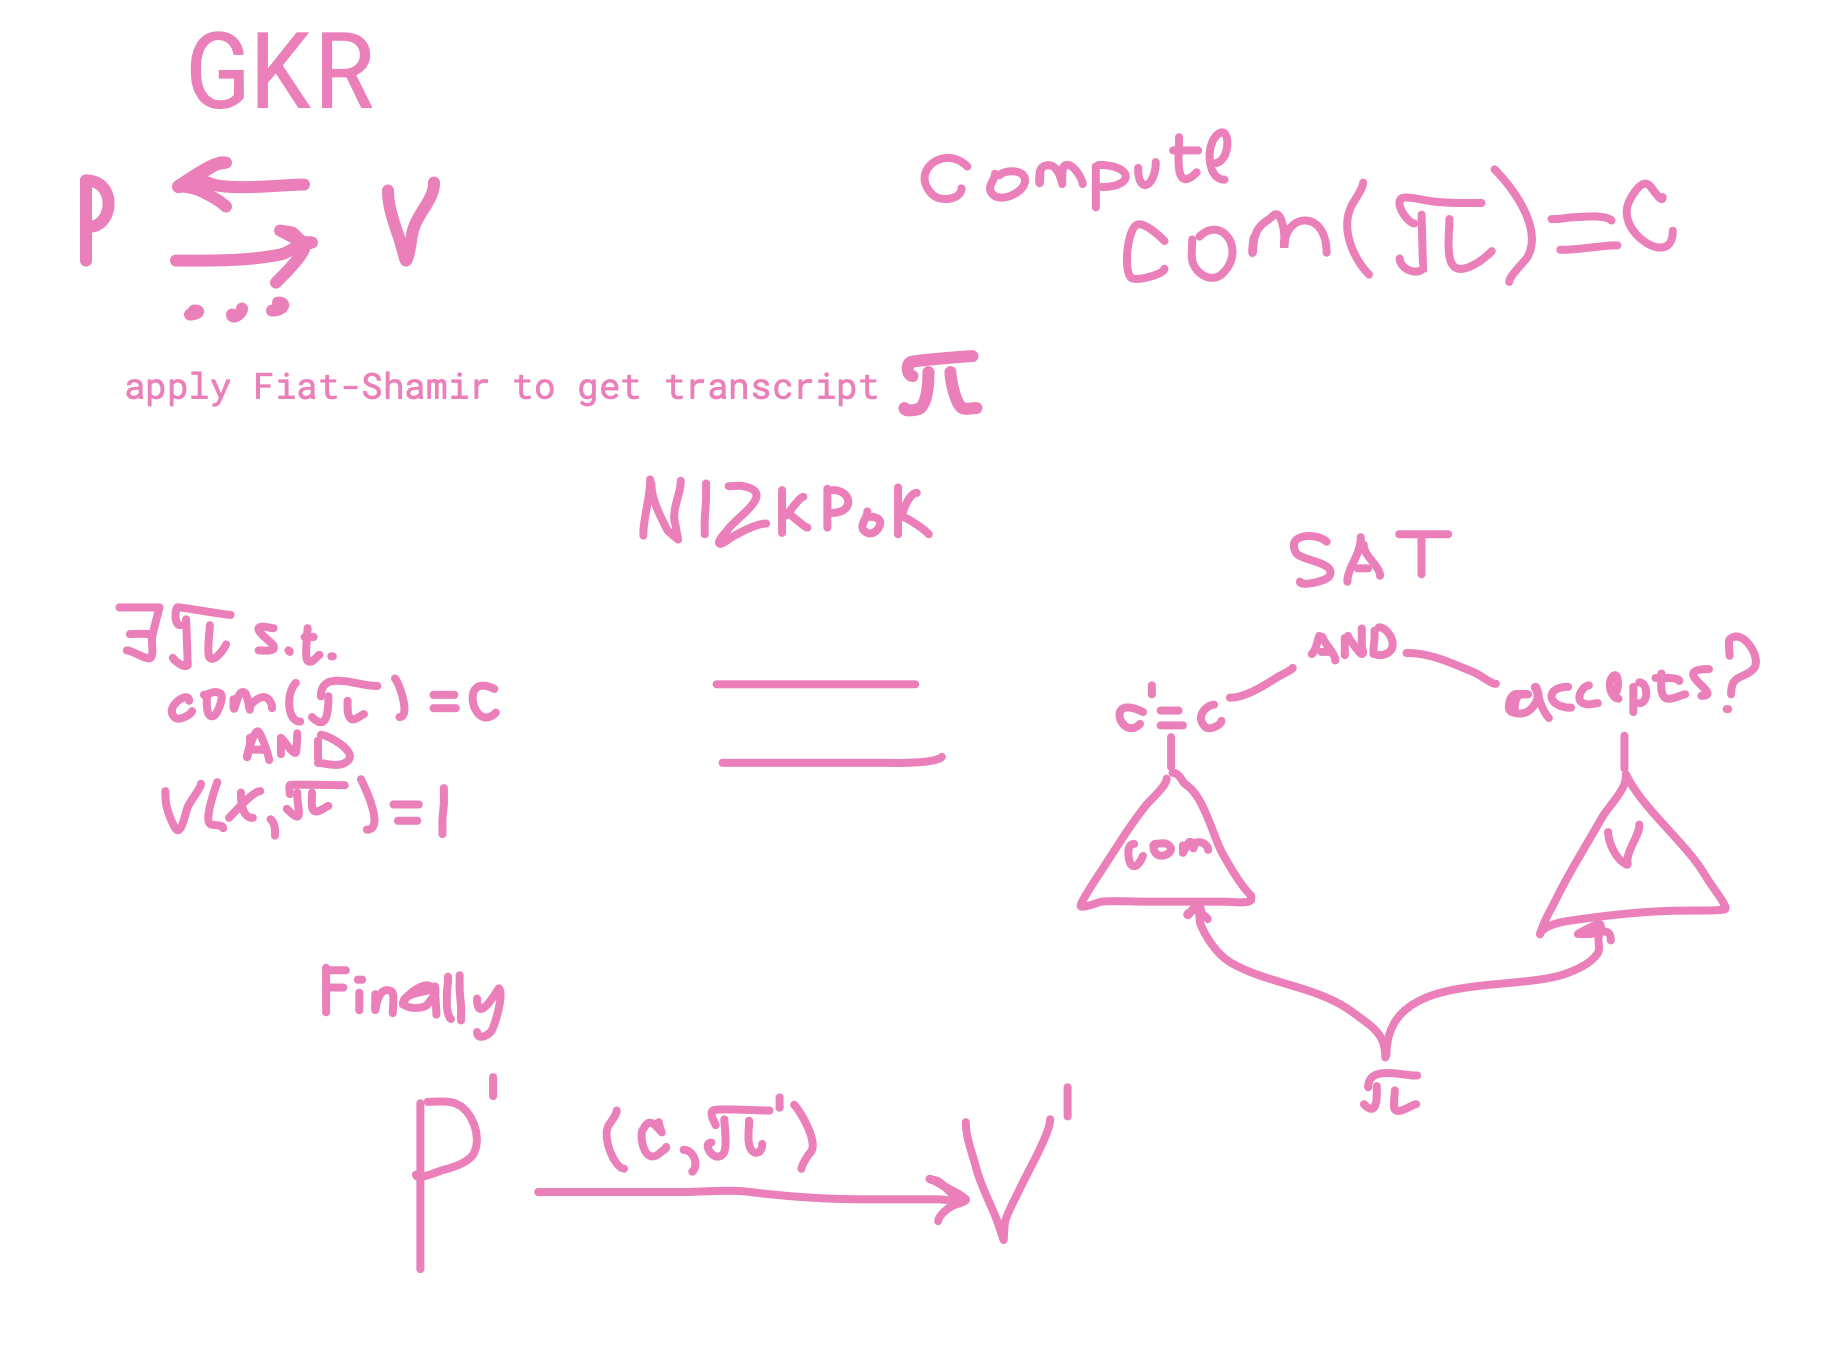 GKR
P V
...
compute
com(π)=C
apply Fiat-Shamir to get transcript π
NIZKPoK
∃π s.t.
com(π)=C
AND
V(x,π)=1
SAT
AND
c'=c
accepts?
com
V
π
Finally
P' (C,π') V'